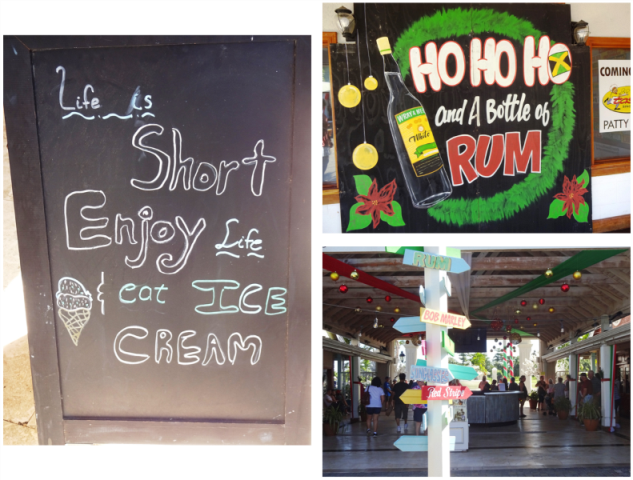 Life is
Short
Enjoy Life
& eat ICE
CREAM
HO HO HO
and A Bottle of
RUM
White
COMING
PATTY
BOB MARLEY
Red Stripe